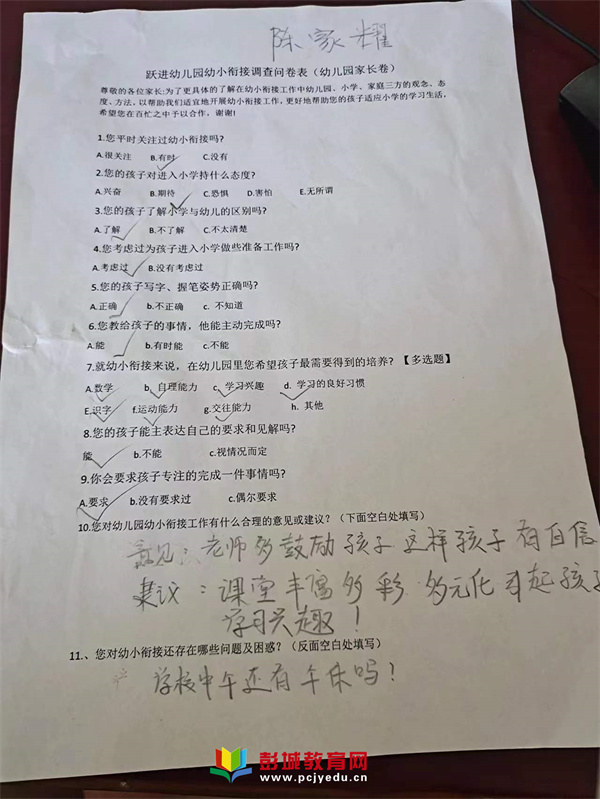 陈家耀
跃进幼儿园幼小衔接调查问卷表（幼儿园家长卷）
尊敬的各位家长:为了更具体的了解在幼小衔接工作中幼儿园、小学、家庭三方的观念、态
度、方法，以帮助我们适宜地开展幼小衔接工作，更好地帮助您的孩子适应小学的学习生活，
希望您在百忙之中予以合作，谢谢!
1.您平时关注过幼小衔接吗?
A.很关注 B.有时 C.没有
2.您的孩子对进入小学持什么态度?
A.兴奋 B.期待 C.恐惧 D.害怕 E.无所谓
3.您的孩子了解小学与幼儿的区别吗?
A.了解 B.不了解 C.不太清楚
4.您考虑过为孩子进入小学做些准备工作吗?
A.考虑过 B.没有考虑过
5.您的孩子写字、握笔姿势正确吗?
A.正确 b.不正确 c. 不知道
6.您教给孩子的事情，他能主动完成吗?
A.能 b.有时能 c.不能
7.就幼小衔接来说，在幼儿园里您希望孩子最需要得到的培养? 【多选题】
A.数学 b. 自理能力 c. 学习兴趣 d. 学习的良好习惯
E.识字 f.运动能力 g.交往能力 h. 其他
8.您的孩子能主表达自己的要求和见解吗?
能 b.不能 c.视情况而定
9.你会要求孩子专注的完成一件事情吗?
A.要求 b.没有要求过 c.偶尔要求
10.您对幼儿园幼小衔接工作有什么合理的意见或建议? （下面空白处填写）
意见：老师多鼓励孩子这样孩子有自信
建议：课堂丰富多彩 多元化 引起孩子
学习兴趣！
11.、您对幼小衔接还存在哪些问题及困惑? （反面空白处填写）
学校中午还有午休吗！
彭城教育网
www.pcjyedu.cn